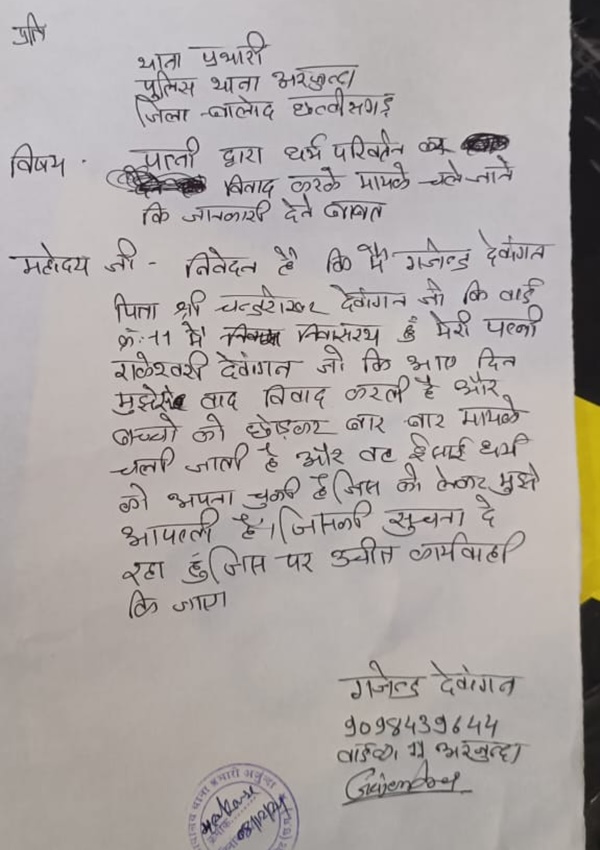 प्रति
थाना प्रभारी
पुलिस थाना अरजुन्दा
जिला - बालोद छत्तीसगढ़
विषय - पत्नी द्वारा धर्म परिवर्तन कर
विवाद करके मायके चले जाने
कि जानकारी देने बाबत
महोदय जी - निवेदन है कि मैं गजेन्द्र देवांगन
पिता श्री चन्द्रशेखर देवांगन जो कि वार्ड
क्र.-11 में निवासरथ हुँ मेरी पत्नी
राकेश्वरी देवांगन जो कि आए दिन
मुझसे वाद विवाद करती है और
बच्चो को छोड़कर बार बार मायके
चली जाती है और वह ईसाई धर्म
को अपना चुकी है जिस को लेकर मुझे
आपत्ती है। जिसकी सुचना दे
रहा हुँ जिस पर उचीत कार्यवाही
कि जाए
गजेन्द्र देवांगन
9098439644
वार्ड क्र. 11 अरजुन्दा
Gajendra